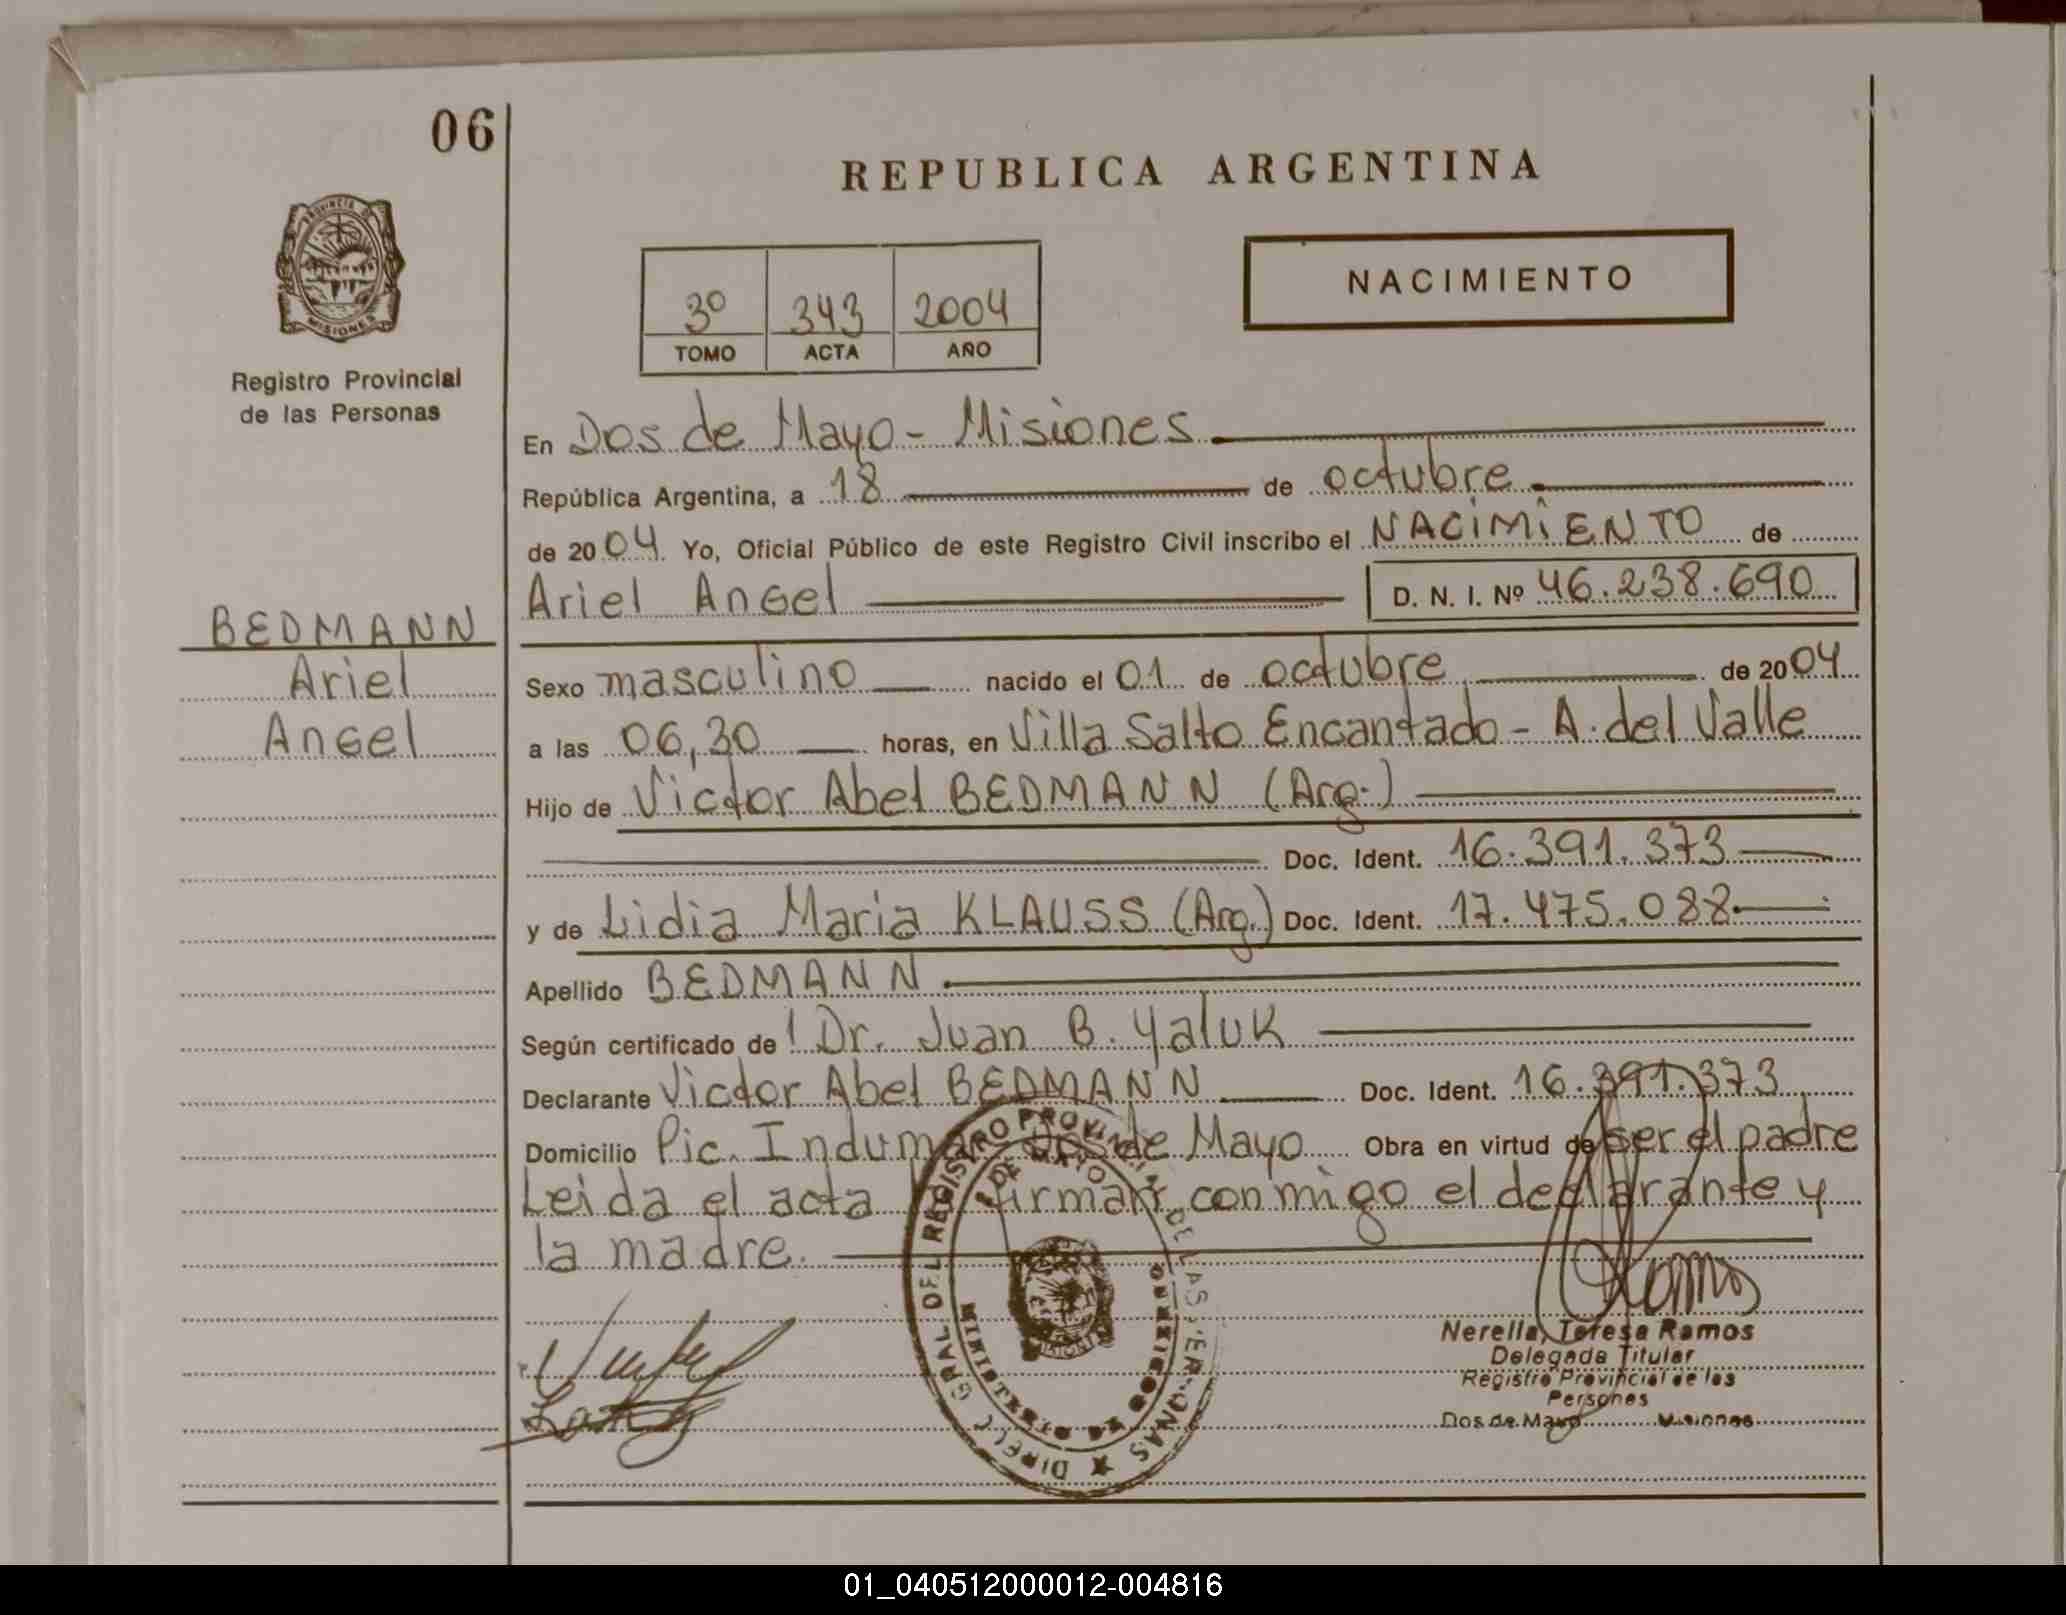 06
REPUBLICA ARGENTINA
PROVINCIA DE
MISIONES
NACIMIENTO
3º 343 2004
TOMO ACTA AÑO
Registro Provincial
de las Personas
En Dos de Mayo - Misiones
República Argentina, a 18 de octubre
de 2004 Yo, Oficial Público de este Registro Civil inscribo el NACIMIENTO de
Ariel Angel D. N. I. Nº 46.238.690
BEDMANN
Ariel
Angel
Sexo masculino nacido el 01 de octubre de 2004
a las 06,30 horas, en Villa Salto Encantado - A. del Valle
Hijo de Victor Abel BEDMANN (Arg.)
Doc. Ident. 16.391.373
y de Lidia Maria KLAUSS (Arg.) Doc. Ident. 17.475.088
Apellido BEDMANN
Según certificado de Dr. Juan B. Yaluk
Declarante Victor Abel BEDMANN Doc. Ident. 16.391.373
Domicilio Pic. Indumar Dos de Mayo Obra en virtud de ser el padre
Leida el acta firman conmigo el declarante y
la madre.
DIRECC GRAL DEL REGISTRO PROVINCIAL DE LAS PERSONAS
2 DE MAYO
MINISTERIO DE GOBIERNO
Ramos
Nerella, Teresa Ramos
Delegada Titular
Registro Provincial de las
Personas
Dos de Mayo Misiones
01_040512000012-004816